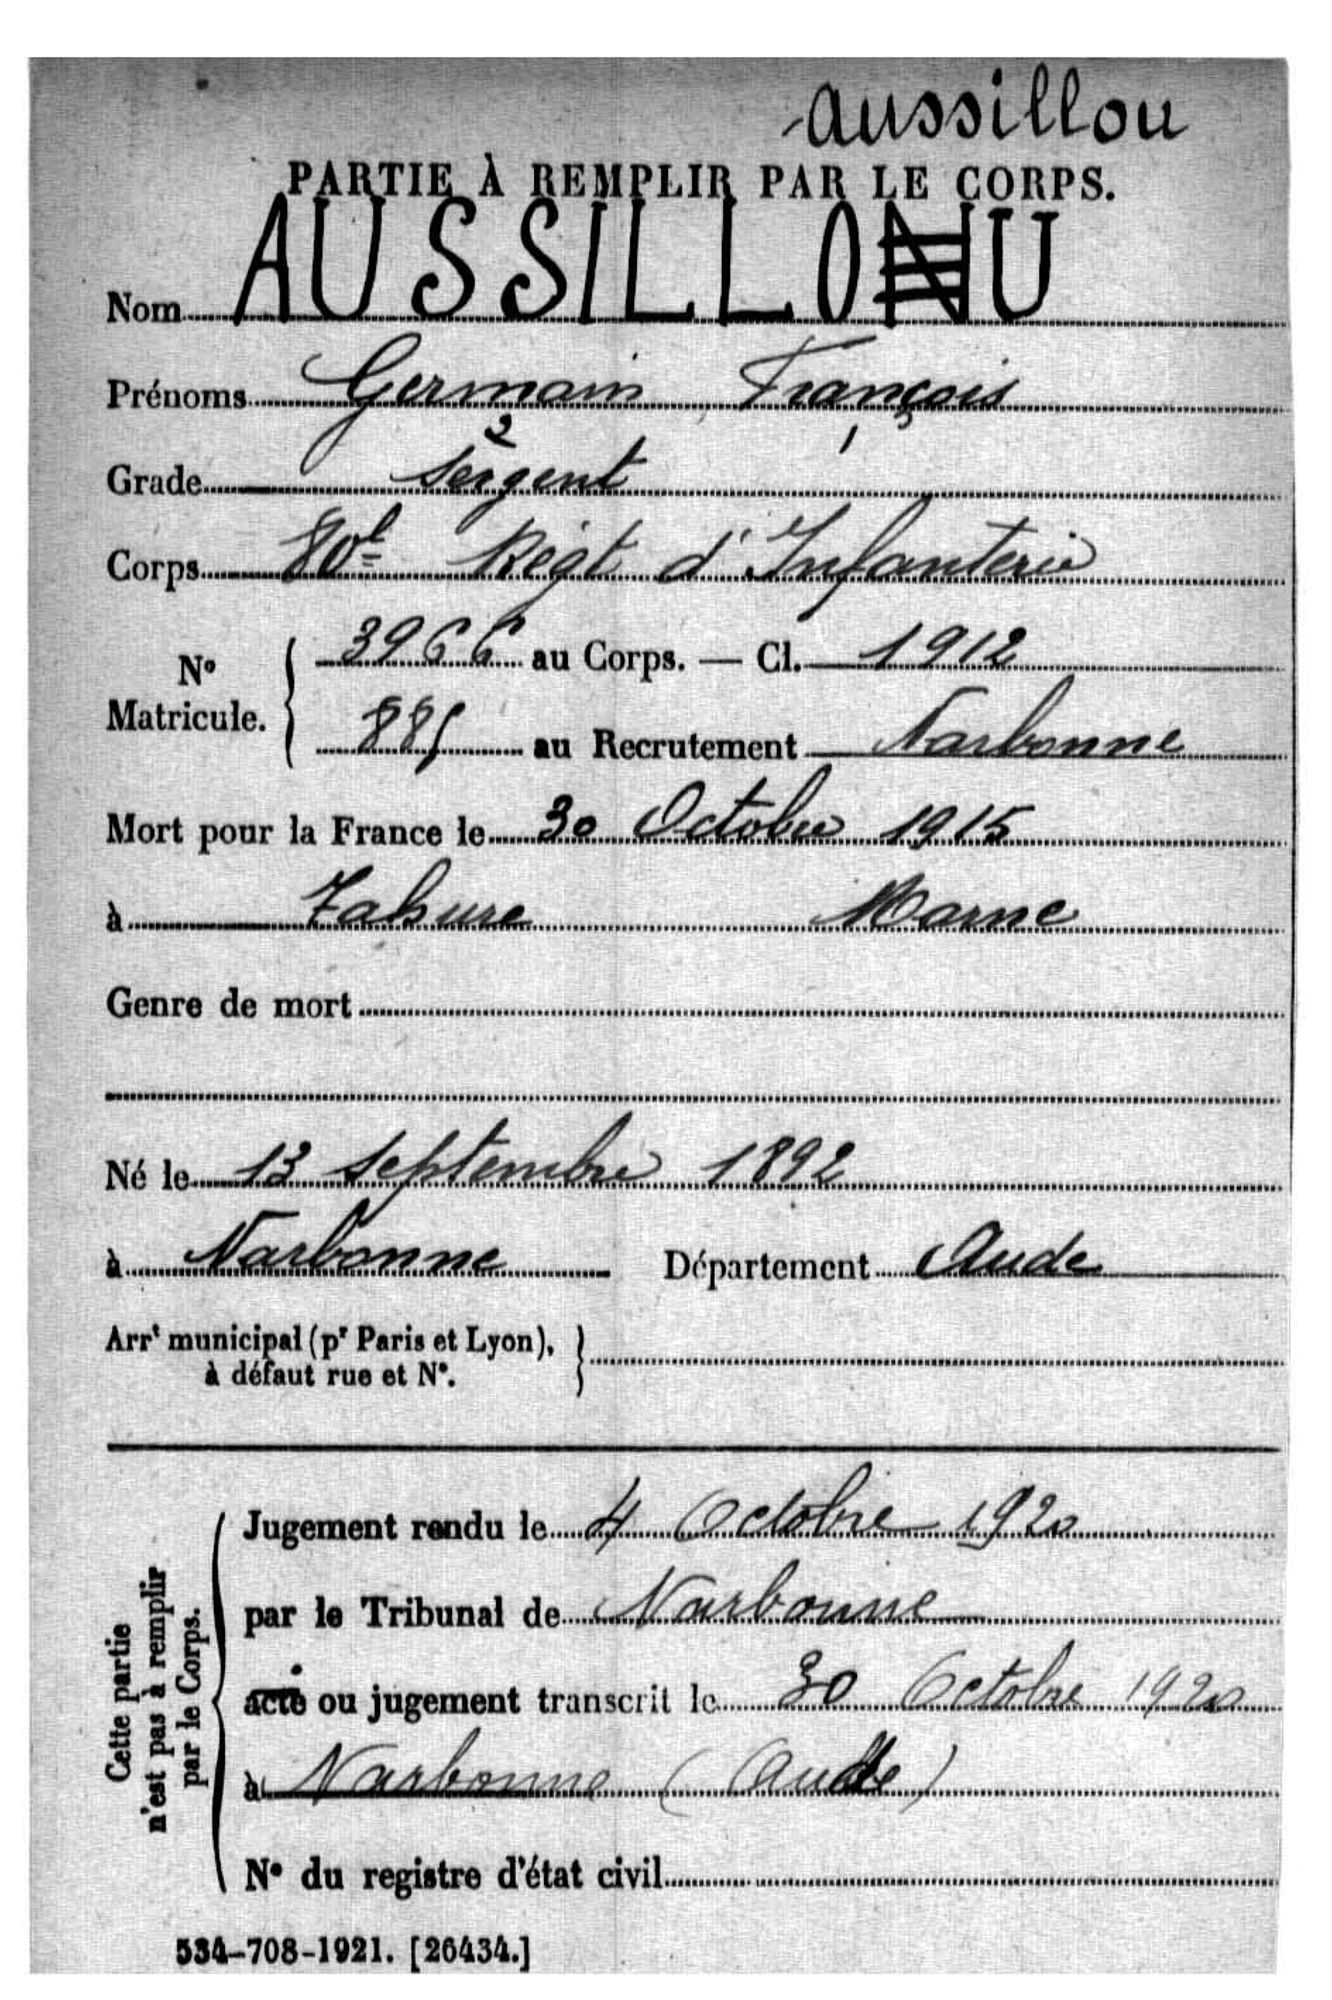 aussillou
PARTIE À REMPLIR PAR LE CORPS.
Nom AUSSILLONU
Prénoms Germain François
2 1
Grade Sergent
Corps 80e Régt d'Infanterie
No Matricule. 3966 au Corps. — Cl. 1912
885 au Recrutement Narbonne
Mort pour la France le 30 Octobre 1915
à Tahure Marne
Genre de mort
Né le 13 Septembre 1892
à Narbonne Département Aude
Arrt municipal (pr Paris et Lyon),
à défaut rue et No.
Cette partie
n'est pas à remplir
par le Corps.
Jugement rendu le 4 Octobre 1920
par le Tribunal de Narbonne
acte ou jugement transcrit le 30 Octobre 1920
à Narbonne (Aude)
No du registre d'état civil
534-708-1921. [26434.]